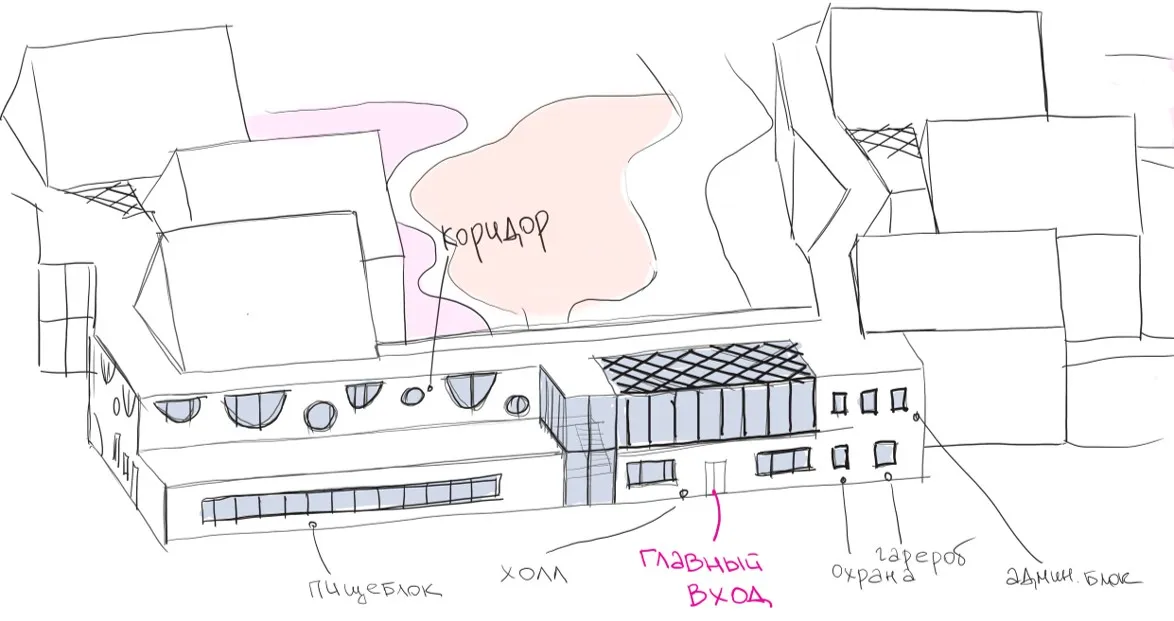 коридор
пищеблок
холл
главный
вход
охрана
гарероб
админ. блок